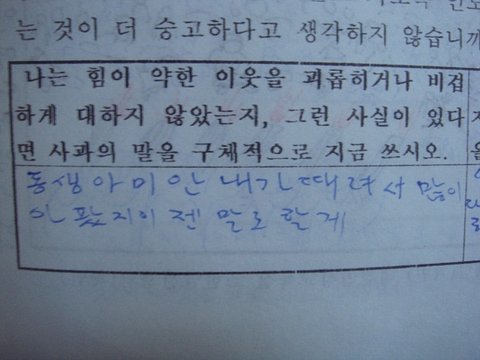 는 것이 더 숭고하다고 생각하지 않습니까
나는 힘이 약한 이웃을 괴롭히거나 비겁
하게 대하지 않았는지, 그런 사실이 있다
면 사과의 말을 구체적으로 지금 쓰시오.
동생아 미안 내가 때려서 많이
아팠지 이젠 말로 할게